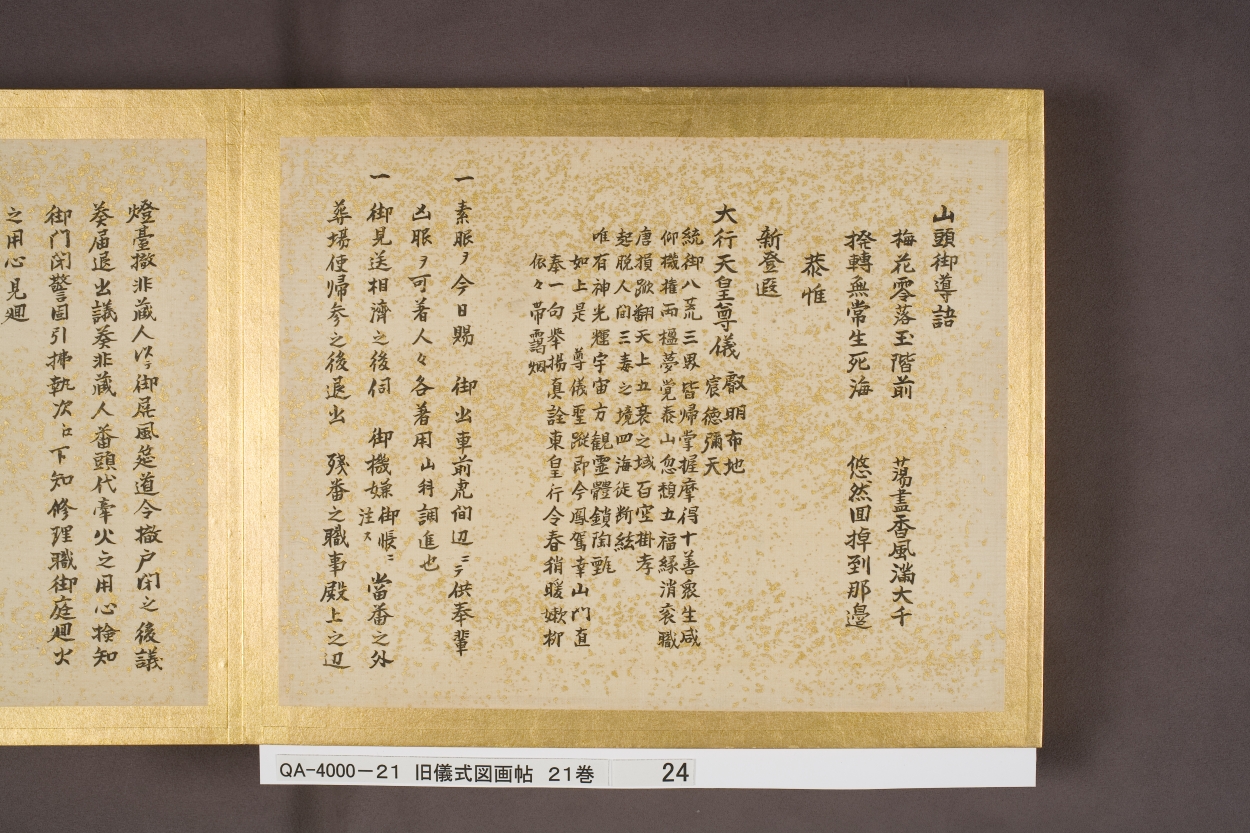 山頭御導語
梅花零落玉階前　蕩盡香風満大千
撥轉無常生死海　悠然囬掉到那邊
恭惟
新登遐
大行天皇尊儀　叡明布地
宸徳彌天
統御八荒三界皆帰掌握摩得十善衆生咸
仰機権両楹夢覚泰山忽頽五福縁消衮職
唐損歘翻天上五衰之域百空掛孝
起脱人間三毒之境四海徒断絃
唯有神光輝宇宙方観霊體鎖陶甄
如上是　尊儀聖蹤即今鳳駕幸山門直
奉一句挙揚真詮東皇行令春稍暖嫰柳
依々帯靄烟
一素服ヲ今日賜　御出車前虎間辺ニテ供奉輩
凶服ヲ可著人々各著用山科調進也
一御見送相濟之後伺　御機嫌御帳ニ注ス當番之外
葬場使帰参之後退出　残番之職事殿上之辺
燈臺撤非蔵人以テ御屏風筵道令撤戸閉之後議
奏届退出議奏非蔵人番頭代牽火之用心検知
御门閉警固引拂執次ニ下知修理職御庭廻火
之用心見廻
QA-4000-21 旧儀式図画帖 21巻　24